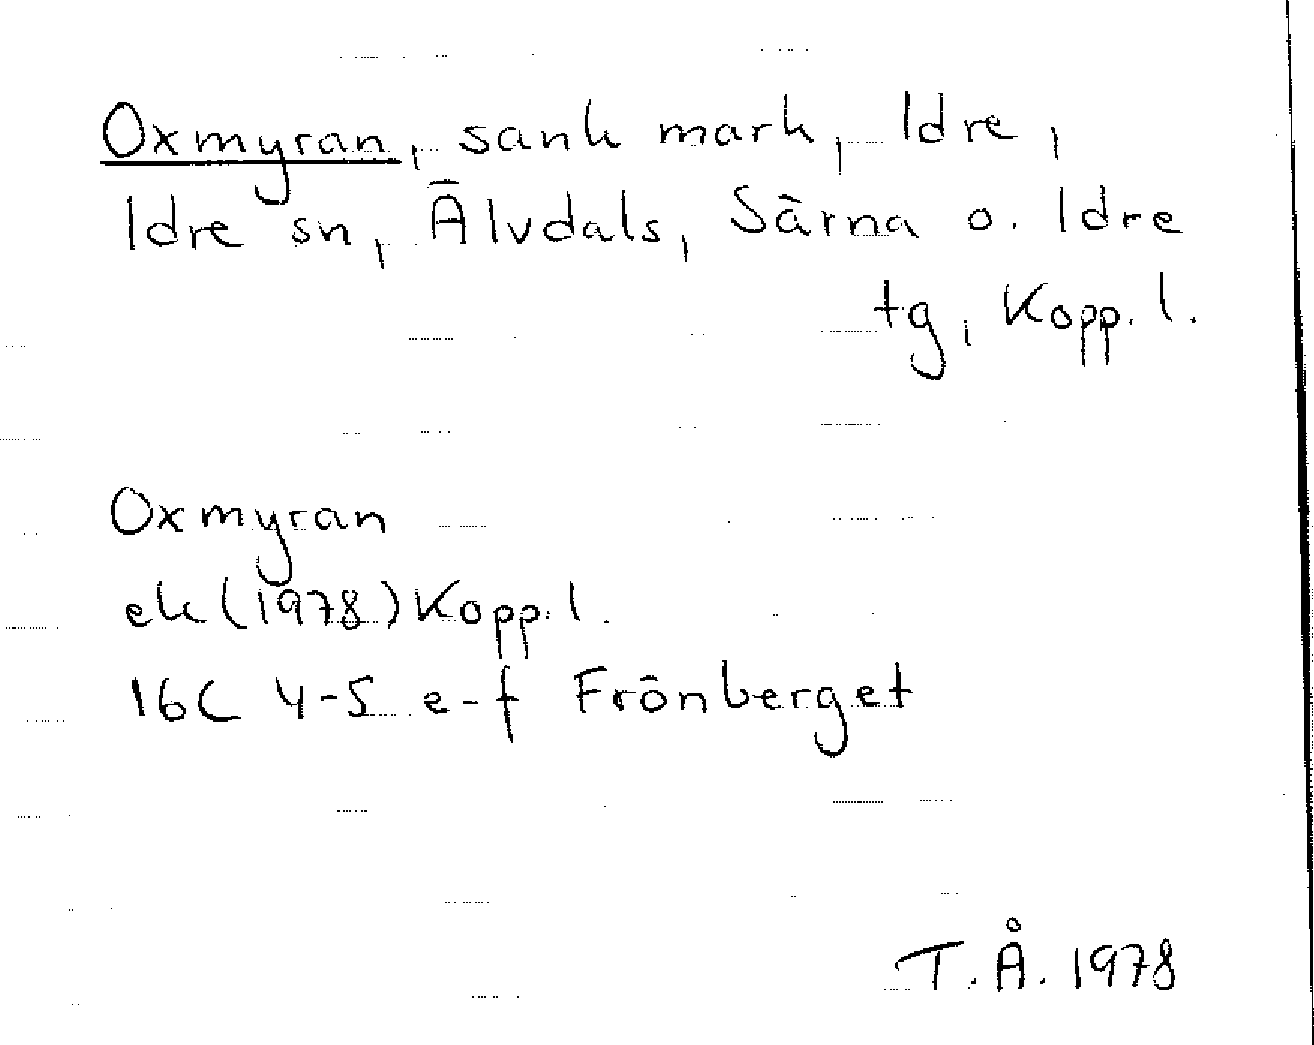 Oxmyran, sank mark, Idre,
Idre sn, Älvdals, Särna o. Idre
tg, Kopp. l.
Oxmyran
ek (1978) Kopp. l.
16C 4-5 e-f Frönberget
T. Å. 1978